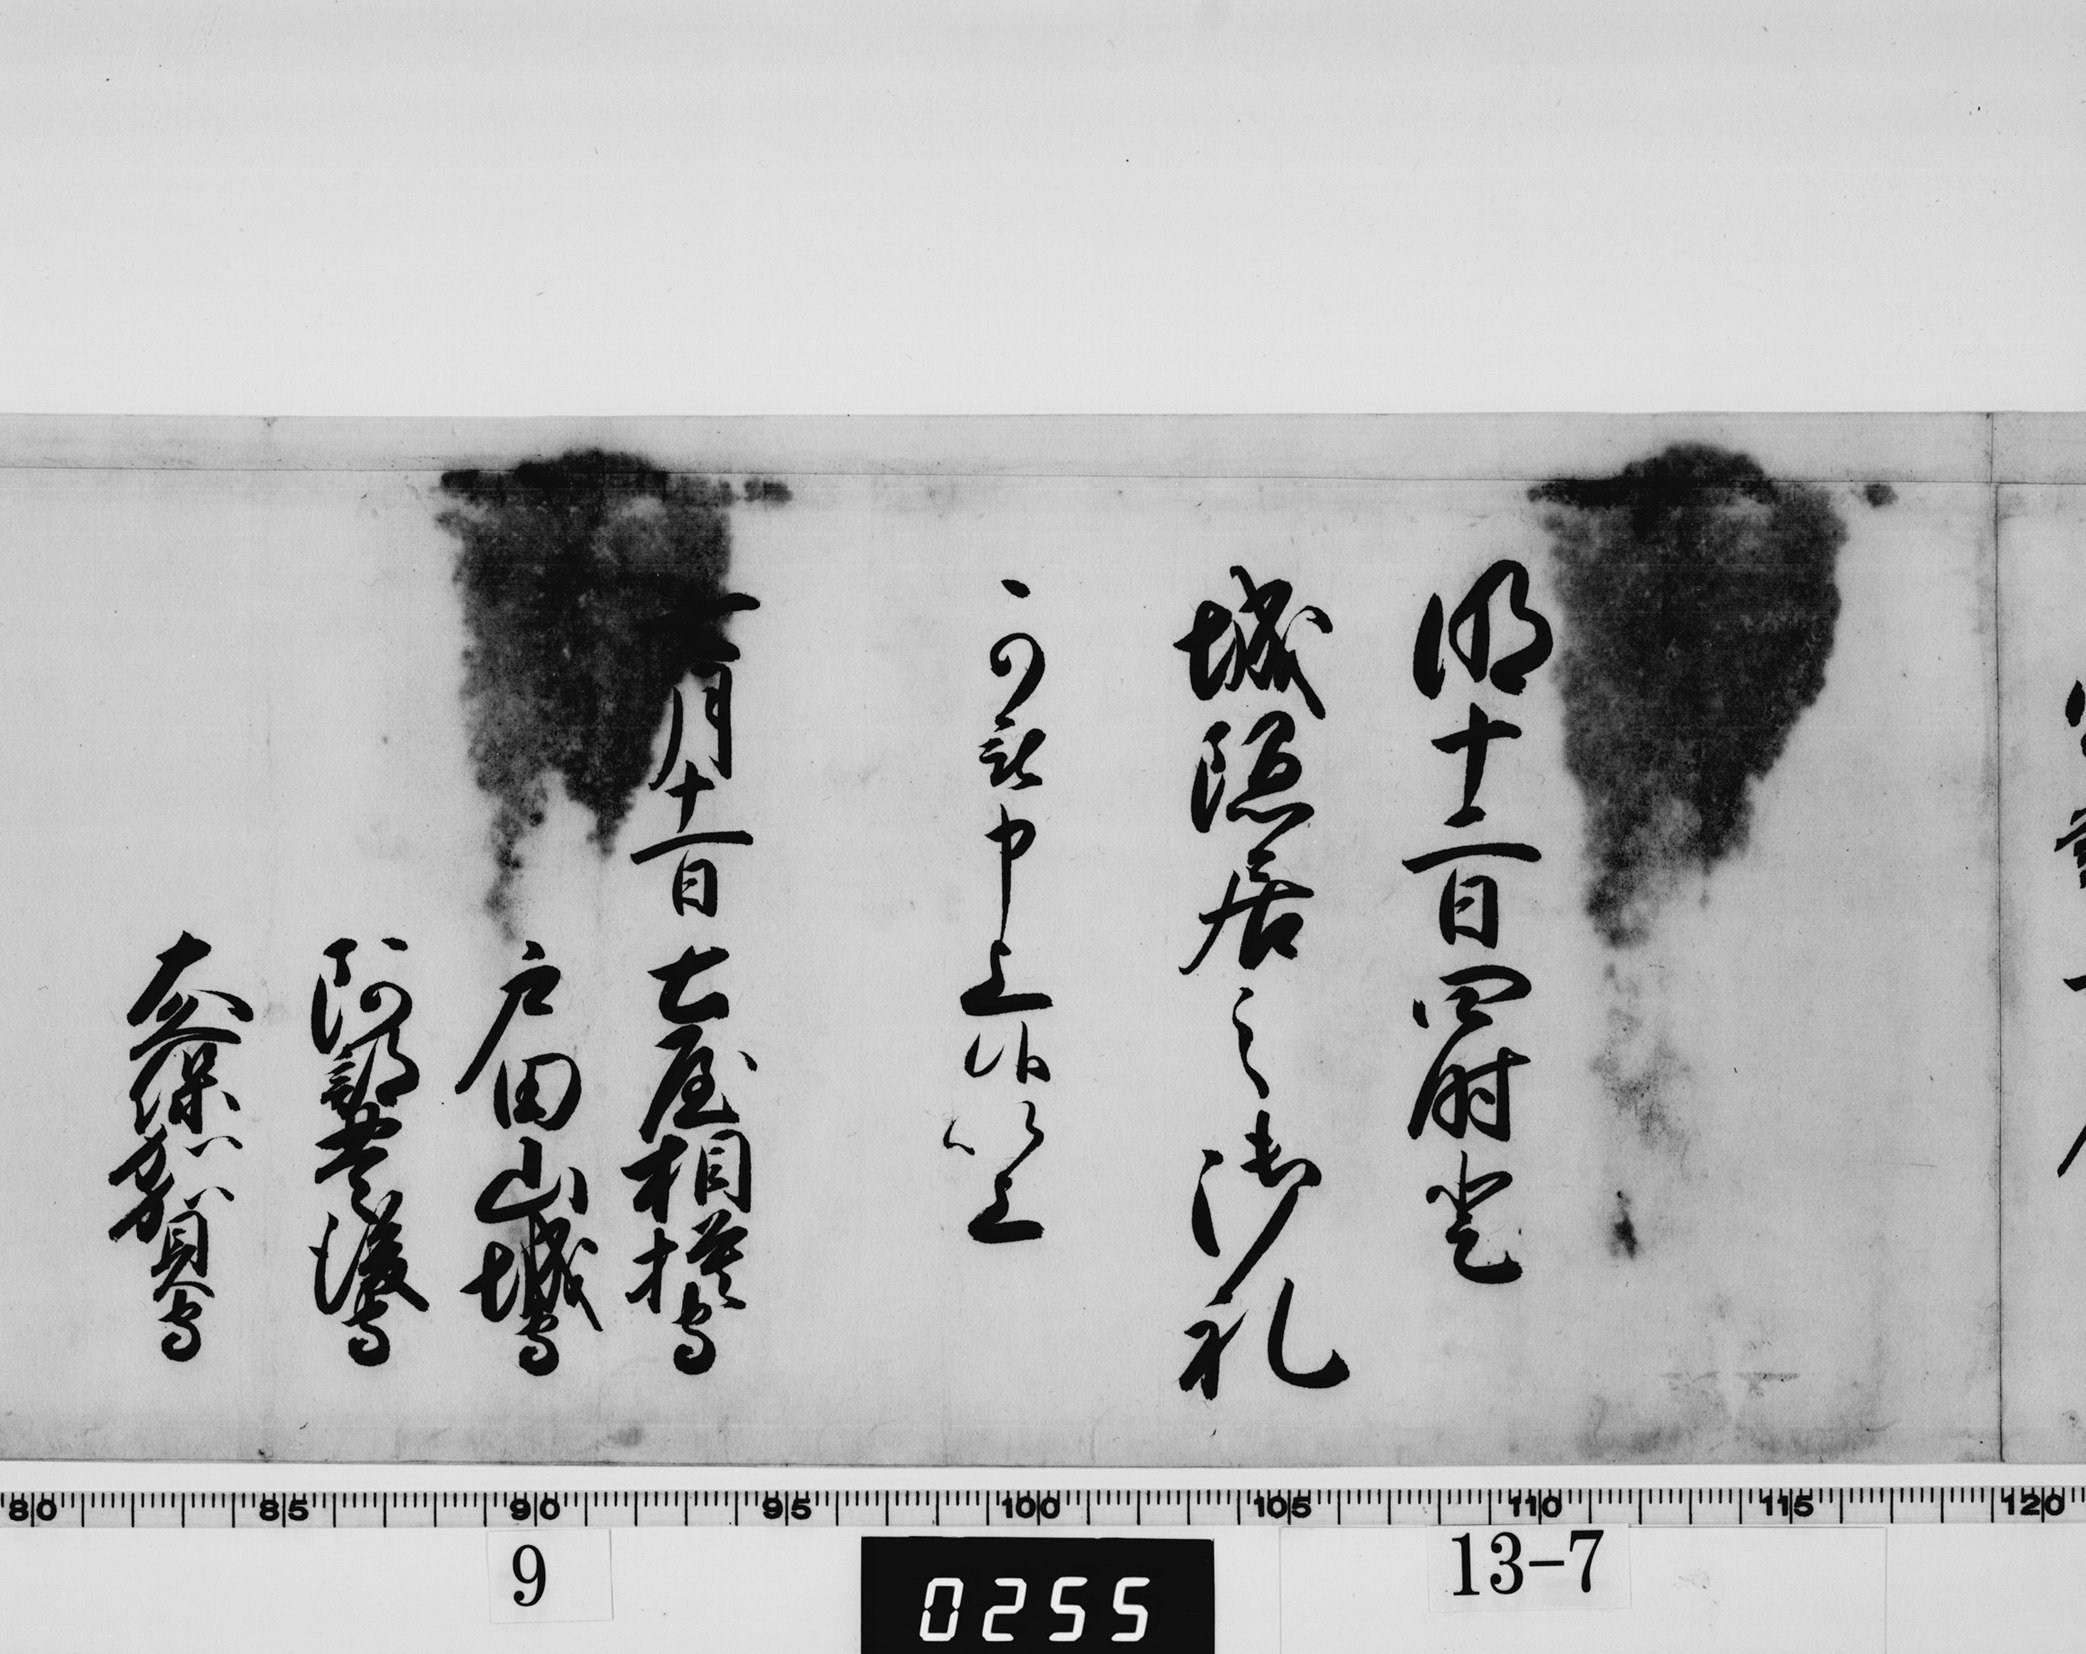 明十二日四時登
城隠居之御礼
可被申上候以上
六月十一日 土屋相模守
戸田山城守
阿部豊後守
大久保加賀守
80 85 90 95 100 105 110 115 120
9 0255 13-7